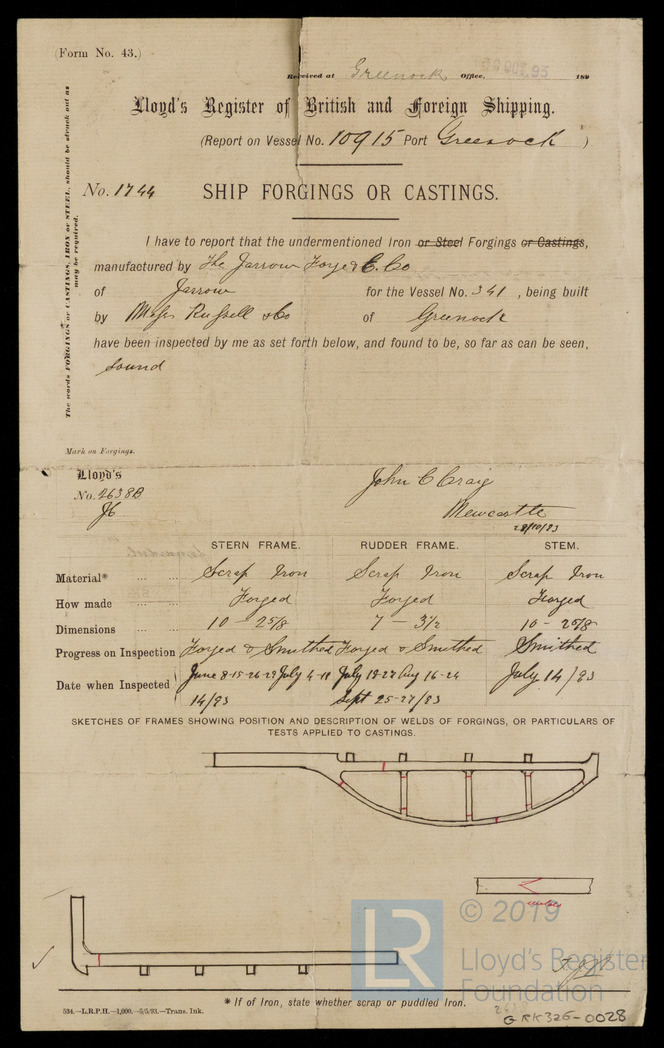 (Form No. 43.)
Received at Greenock Office, 93 189
Lloyd's Register of British and Foreign Shipping.
(Report on Vessel No. 10915 Port Greenock )
No. 1744 SHIP FORGINGS OR CASTINGS.
The words FORGINGS or CASTINGS, IRON or STEEL, should be struck out as may be required.
I have to report that the undermentioned Iron or Steel Forgings or Castings,
manufactured by The Jarrow Forge & E. Co
of Jarrow for the Vessel No. 341, being built
by Messrs Russell & Co of Greenock
have been inspected by me as set forth below, and found to be, so far as can be seen,
sound
Mark on Forgings.
Lloyd's
No. 2638B
JC
John C Craig
Newcastle
28/10/93
STERN FRAME. RUDDER FRAME. STEM.
Material* ... ... Scrap Iron Scrap Iron Scrap Iron
How made ... ... Forged Forged Forged
Dimensions ... ... 10 - 2 5/8 7 - 3 1/2 10 - 2 5/8
Progress on Inspection Forged & Smithed Forged & Smithed Smithed
Date when Inspected June 8-15-26-29 July 4-11 July 18-27 Aug 16-24 July 14/93
14/93 Sept 25-27/93
SKETCHES OF FRAMES SHOWING POSITION AND DESCRIPTION OF WELDS OF FORGINGS, OR PARTICULARS OF
TESTS APPLIED TO CASTINGS.
LR © 2019
Lloyd's Register
Foundation
* If of Iron, state whether scrap or puddled Iron.
534.—L.R.P.H.—1,000.—5/5/93.—Trans. Ink.
GRK326-0028